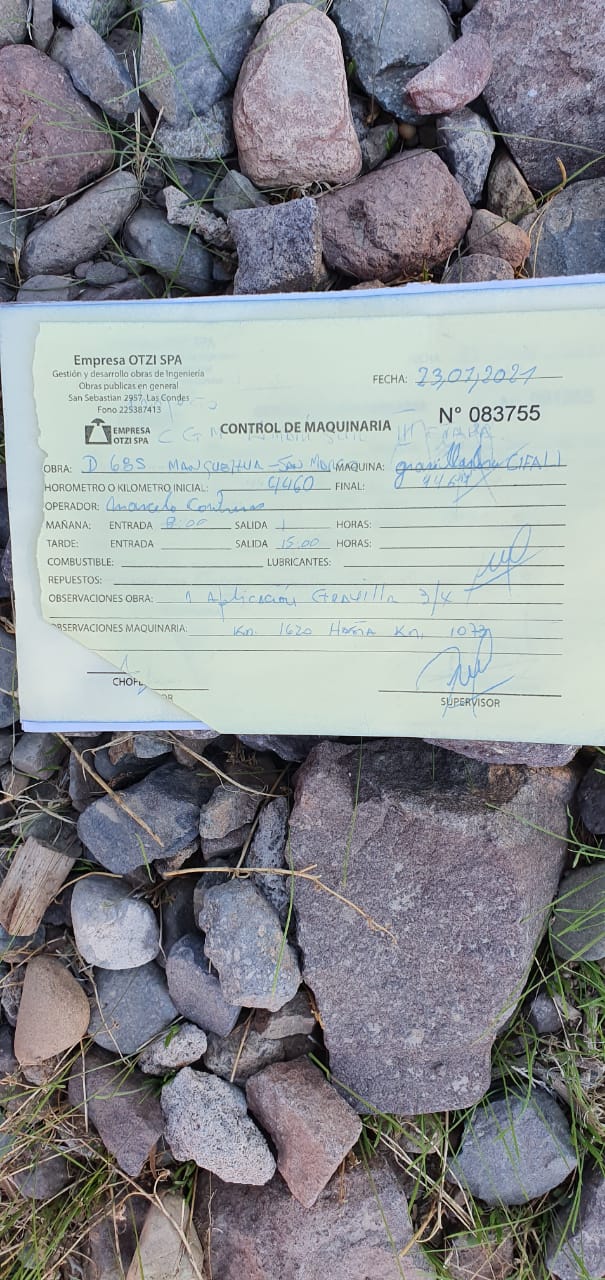 Empresa OTZI SPA
Gestión y desarrollo obras de Ingeniería
Obras publicas en general
San Sebastian 2957, Las Condes
Fono 225387413
FECHA: 23,07,2021
EMPRESA OTZI SPA
CONTROL DE MAQUINARIA
N° 083755
OBRA: D 685 MAQUINA: (IFAL)
HOROMETRO O KILOMETRO INICIAL: 4460 FINAL:
OPERADOR: Marcelo Contreras
MAÑANA: ENTRADA 8:00 SALIDA 1 HORAS:
TARDE: ENTRADA SALIDA 15.00 HORAS:
COMBUSTIBLE: LUBRICANTES:
REPUESTOS:
OBSERVACIONES OBRA: 1 Aplicación Gravilla 3/4
OBSERVACIONES MAQUINARIA: Km. 1620 Hasta Km.
SUPERVISOR